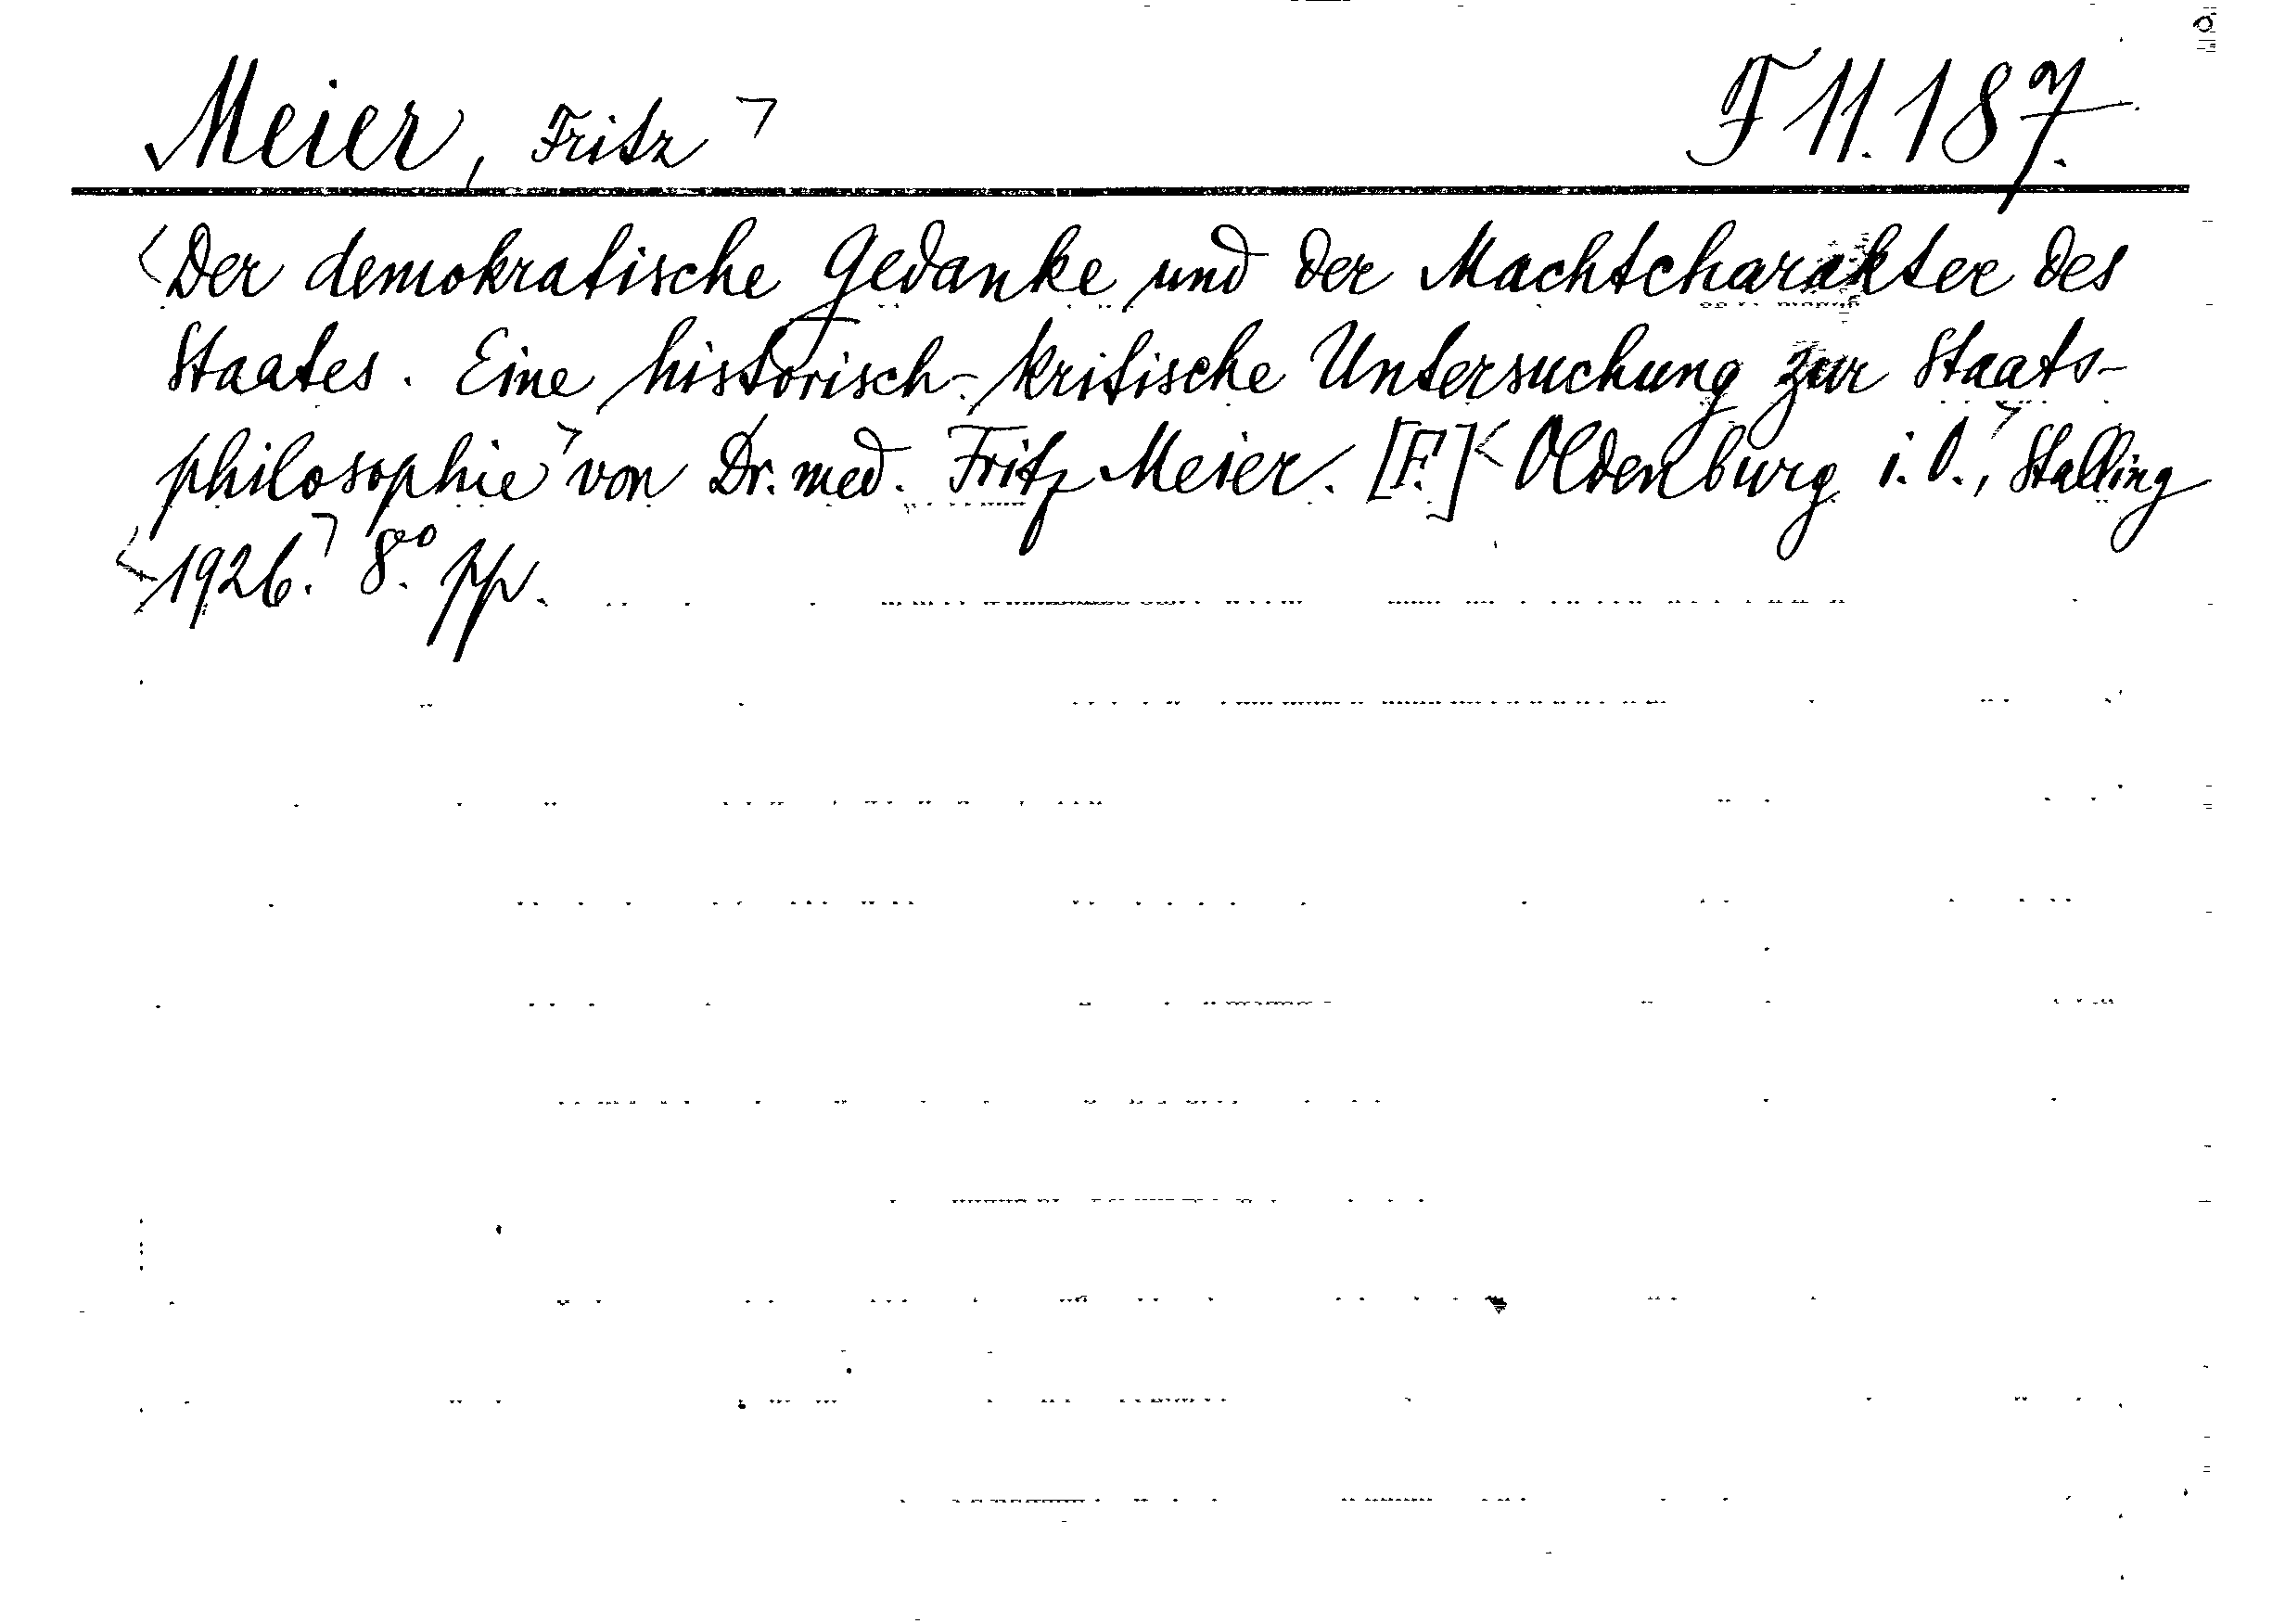 Meier, Fritz ⌝ F 11.187.
<Der demokratische Gedanke und der Machtcharakter des
Staates. Eine historisch-kritische Untersuchung zur Staats-
philosophie⌝ von Dr. med. Fritz Meier. [F.] <Oldenburg i.O.,⌝ Stalling
<1926.⌝ 8.° pp.